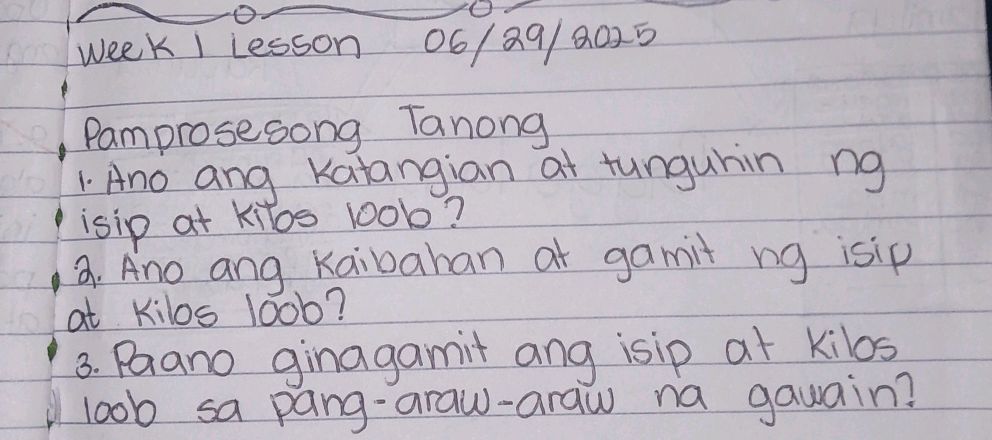 Week 1 Lesson 06/29/2025
Pamprosesong Tanong
1. Ano ang Katangian at tunguhin ng
isip at kilos loob?
2. Ano ang Kaibahan at gamit ng isip
at Kilos loob?
3. Paano ginagamit ang isip at Kilos
loob sa pang-araw-araw na gawain?